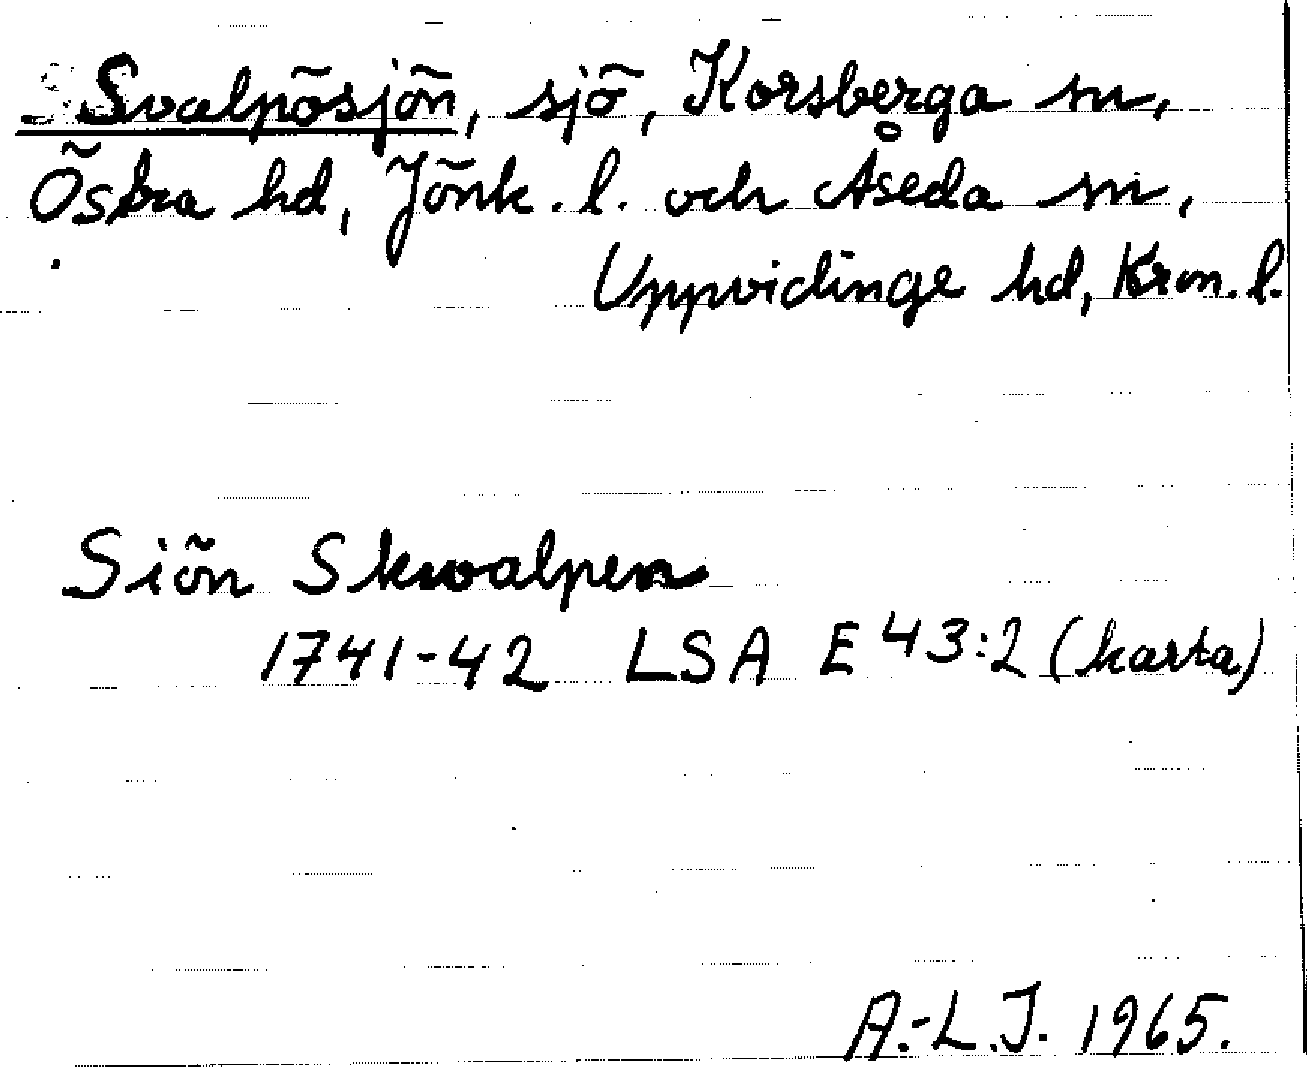 Svalpösjön, sjö, Korsberga sn,
Östra hd, Jönk. l. och Åseda sn,
Uppvidinge hd, Kron. l.
Siön Skwalpen
1741-42 LSA E 43:2 (karta)
A.-L.J. 1965.